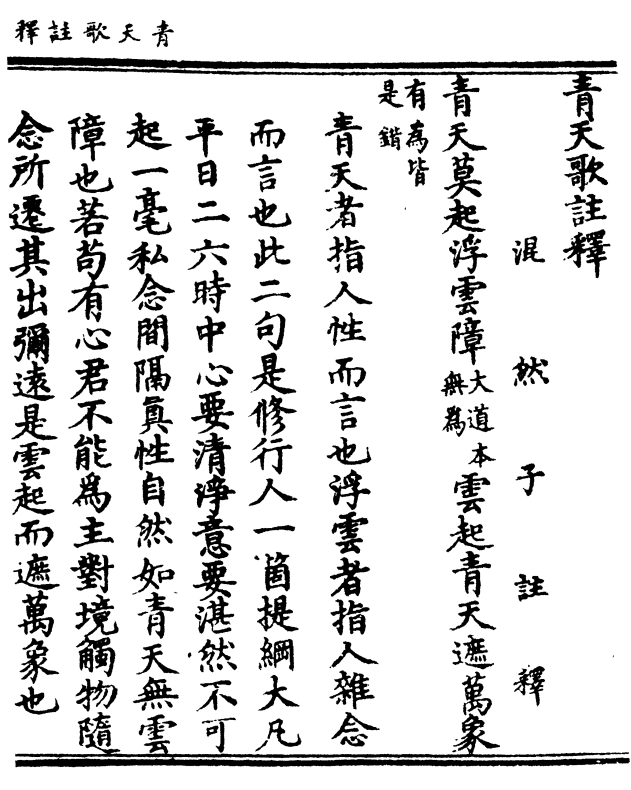 青天歌註釋
青天歌註釋
混然子註釋
青天莫起浮雲障大道本無爲雲起青天遮萬象
有爲皆是錯
青天者指人性而言也浮雲者指人雜念
而言也此二句是修行人一箇提綱大凡
平日二六時中心要清淨意要湛然不可
起一毫私念間隔眞性自然如青天無雲
障也若苟有心君不能爲主對境觸物隨
念所遷其出彌遠是雲起而遮萬象也